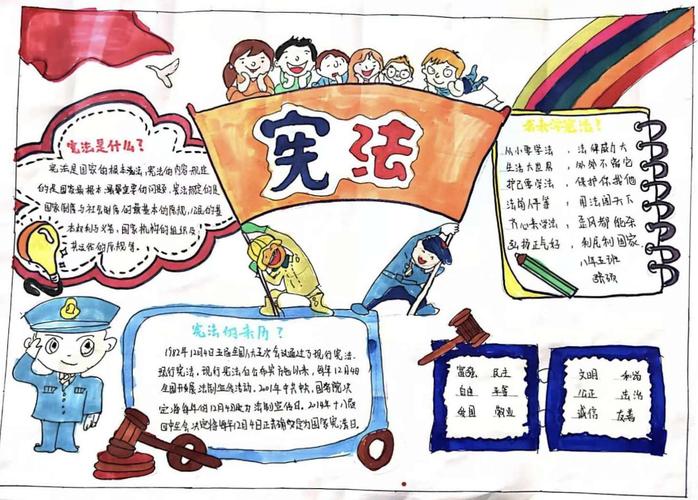 宪法
宪法是什么?
宪法是国家的根本大法,宪法的内容规定
的是国家最根本、最重要的问题,宪法规定的是
国家制度与社会制度的最基本的原规,公民的基
本权利与义务、国家机构的组织及
其运作的原规等。
学宪法!
从小要学法,法律威力大
生活大世界,处处不离它
护己要学法,保护你我他
法前人平等,用法闯天下
齐心来学法,歪风都能杀
弘扬正气好,利民利国家.
八年五班
宪法的来历?
1982年12月4日五届全国人大五次会议通过了现行宪法.
现行宪法,现行宪法自公布实施以来,每年12月4日
全国开展法制宣传活动.2001年中共中央,国务院决
定将每年的12月4日定为法制宣传日。2014年十八届
四中全会决定将每年12月4日正式确定为国家宪法日.
富强 民主
自由 平等
爱国 敬业
文明 和谐
公正 法治
诚信 友善